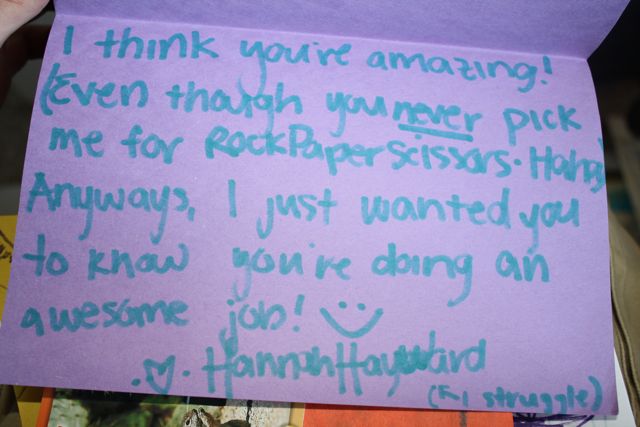 I think you're amazing!
(Even though you never pick
me for RockPaperScissors. Haha)
Anyways, I just wanted you
to know you're doing an
awesome job! :)
. ♡. HannahHayward
(I struggle)